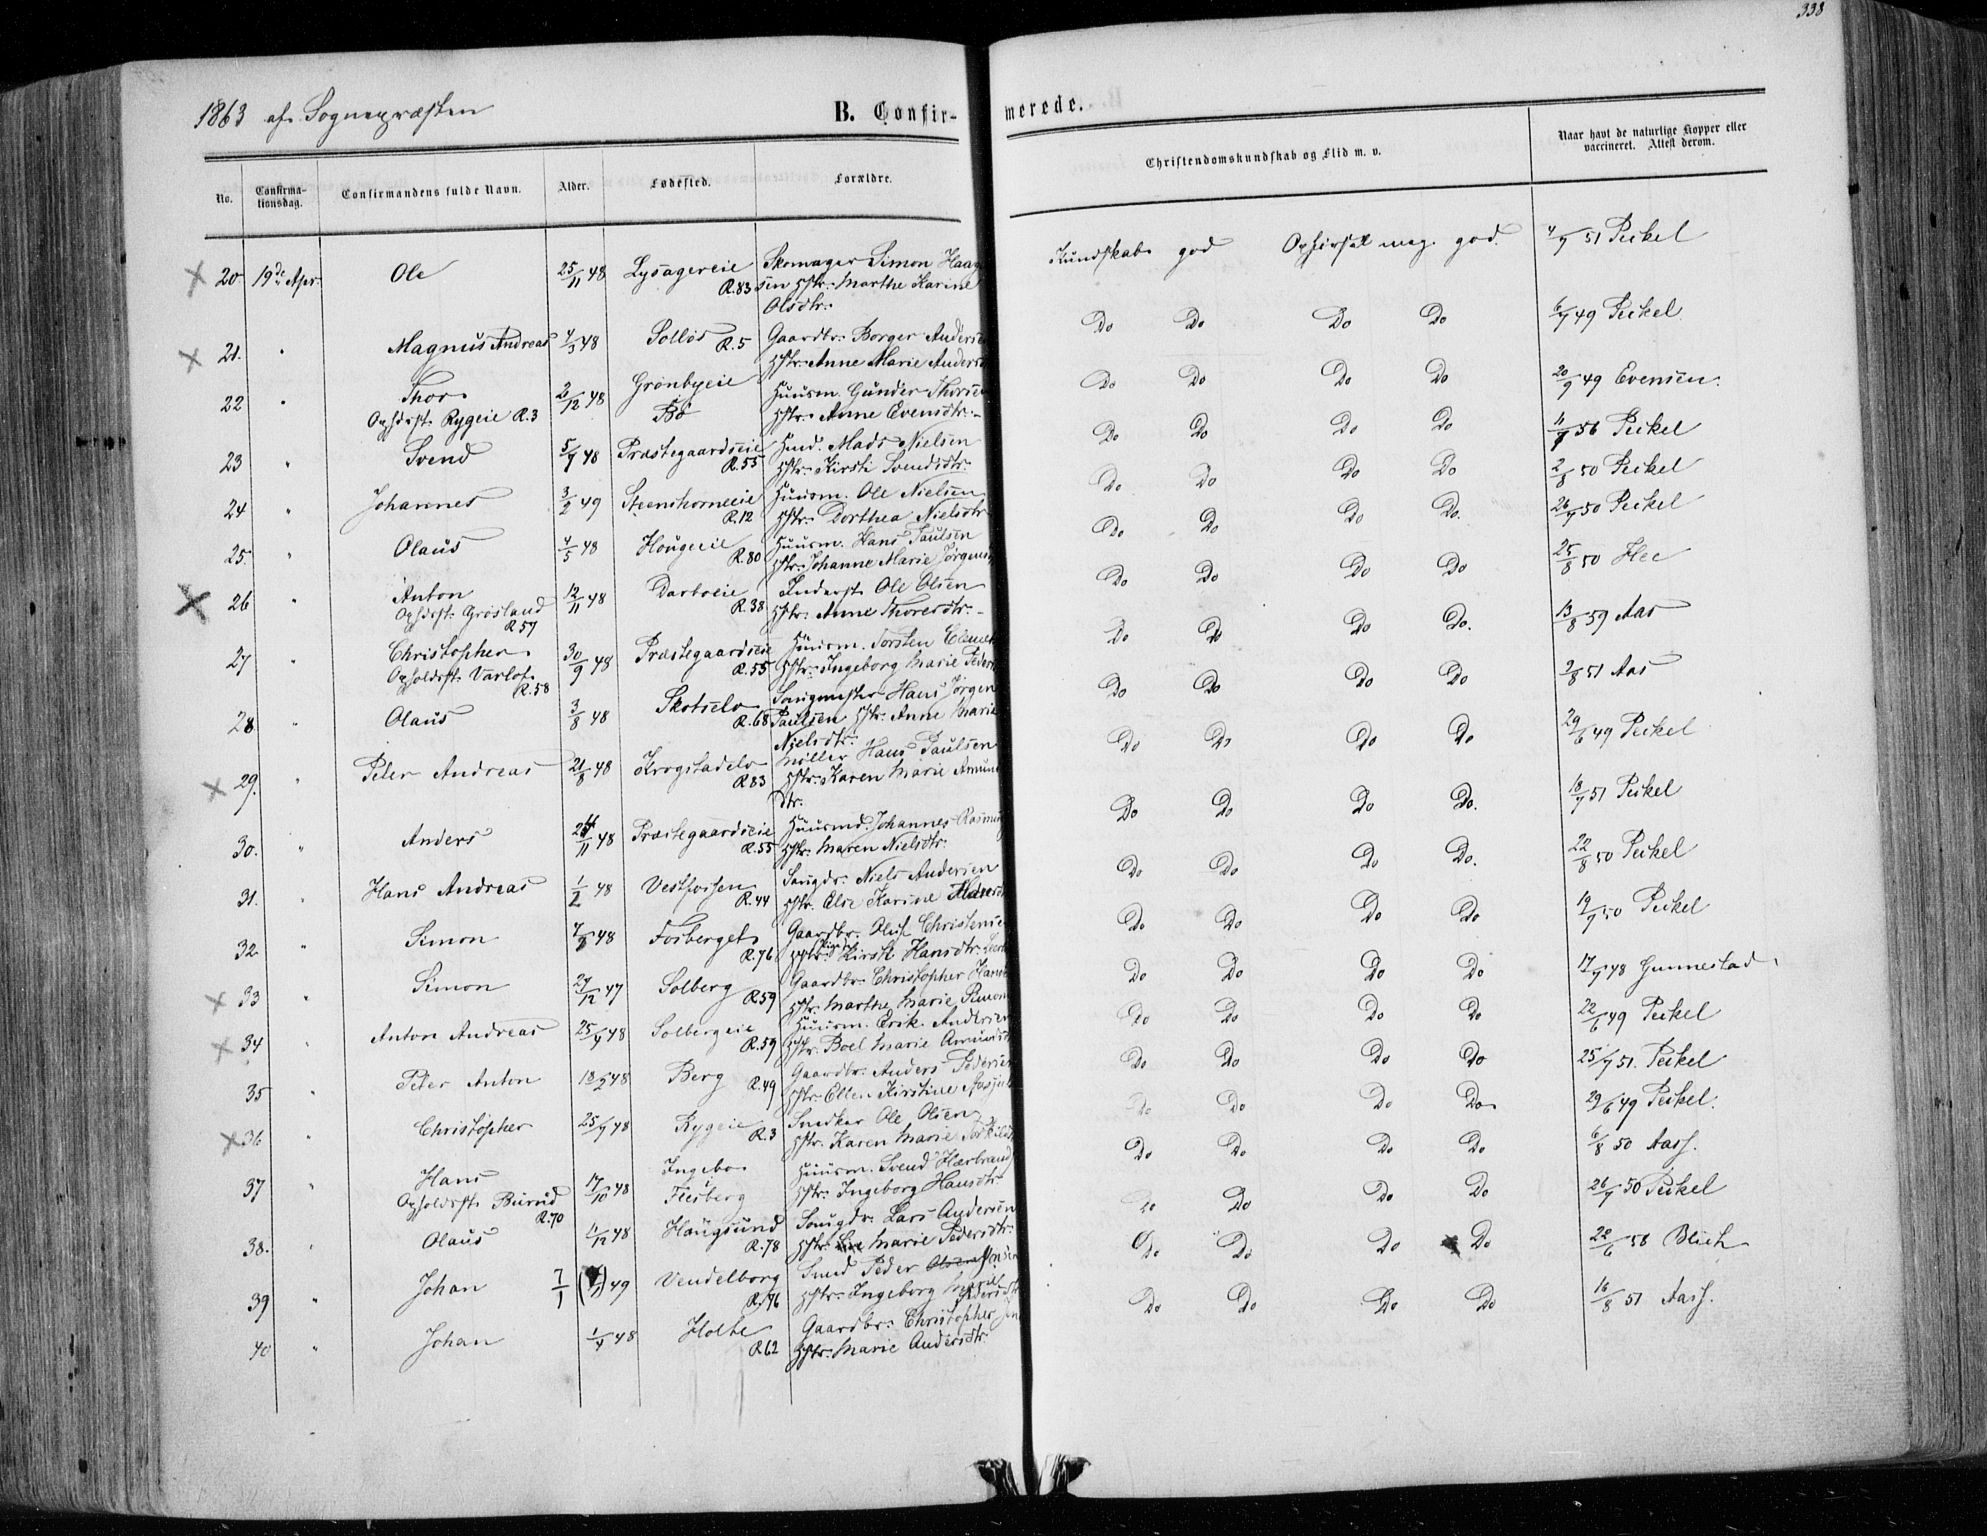 338
1863 af Sognepræsten
B. Confirmerede.
No. Confirmationsdag. Confirmandens fulde Navn. Alder. Fødested. Forældre. Christendomskundskab og Flid m. v. Naar havt de naturlige Kopper eller vaccineret. Attest derom.
20 19de Apr. Ole 25/11 48 Lysagereie R.83 Skomager Simon Haag
sen Hstr. Marthe Karine
Olsdtr.
Kundskab god Opførsel meg. god. 51 Peckel
21. " Magnus Andreas 4/3 48 Solløs R.5 Gaardbr. Borger Anderse
Hstr. Anne Marie Anders
Do Do Do Do 6/7 49 Peckel
22 " Thor 2/12 48 Grønbyeie
Opholdsst. Rygeie R.3 Bø
Huusm. Gunder Thorsen
Hstr. Anne Evensdtr.
Do Do Do Do 20/9 49 Evensen.
23 " Svend 5/7 48 Præstegaardseie R.55 Smd. Mads Nielsen
Hstr. Kirsti Svendsdtr.
Do Do Do Do 56 Peckel
24 " Johannes 3/2 49 Steenshorneeie R.12 Huusm. Ole Nielsen
Hstr. Dorthea Nielsdtr
Do Do Do Do 2/8 50 Peckel
25. " Olaus 4/5 48 Hougeeie R.80 Huusm. Hans Paulsen
Hstr. Johanne Marie Jørgens
Do Do Do Do. 26/7 50 Peckel
26 " Anton 12/11 48 Darboeie R.38 Inderst Ole Olsen
Opholdsst. Grøsland R.57 Hstr. Anne Thoresdtr.
Do Do Do Do 25/8 50 Hee
27 " Christopher 30/9 48 Præstegaardseie R.55 Huusm. Torsten Clemet
Opholdsst. Varlo R.58 Hstr. Ingeborg Marie Peders
Do Do Do Do. 13/8 59 Aas
28 " Olaus 3/8 48 Skotselv R.68 Saugmester Hans Jørgen
Paulsen Hstr. Anne Marie
Nielsdtr.
Do Do Do Do 2/8 51 Aas
29. " Peter Andreas 21/8 48 Krogstadelv R.83 Møller Hans Paulsen
Hstr. Karen Marie Amund
dtr.
Do Do Do Do 29/6 49 Peckel
30. " Anders 24/11 48 Præstegaardseie R.55 Huusmd. Johannes Rasmus
Hstr. Maren Nielsdtr.
Do Do Do Do. 18/7 51 Peckel
31. " Hans Andreas 1/2 48 Vestfossen R.44 Saugdr. Niels Andersen
Hstr. Else Karine
Do Do Do Do. 22/8 50 Peckel
32 " Simon 48 Fosberget R.76 Gaardbr. Oluf Christense
Kirsti Hansdtr.
Do Do Do Do 19/7 50 Peckel
33 " Simon 27/12 47 Solberg R.59 Gaardbr. Christopher Hans
Hstr. Marthe Marie Simon
Do Do Do Do 17/7 48 Gunnestad
34 " Anton Andreas 25/7 48 Solbergeie R.59 Huusm. Erik Andersen
Hstr. Boel Marie Amundsd
Do Do Do Do 22/6 49 Peckel
35 " Peter Anton 18/2 48 Berg R.49 Gaardbr. Anders Pedersen
Hstr. Ellen Kirstine
Do Do Do Do 25/7 51. Peckel
36 " Christopher 25/7 48 Rygeie R.3 Snedker Ole Olsen
Hstr. Karen Marie Torkilds
Do Do Do Do 29/6 49 Peckel.
37 " Hans 17/10 48 Ingebo
Opholdsst. Burud R.70 Flesberg
Huusm. Svend Herbrand
Hstr. Ingeborg Hansdtr
Do Do Do Do 6/8 50 Aass.
38. " Olaus 48 Haugsund R.78 Saugdr. Lars Andersen
Hstr. Marie Pedersdtr.
Do Do Do Do 26/7 50 Peckel
39 " Johan 7/1 49 Vendelborg R.76 Smed Peder Jensen
Hstr. Ingeborg Marie
Do Do Do Do 22/6 58 Blich
40 " Johan 1/4 48 Holte R.62 Gaardbr. Christopher Jen
Hstr. Marie Andersdtr.
Do Do Do Do 16/8 51 Aass.